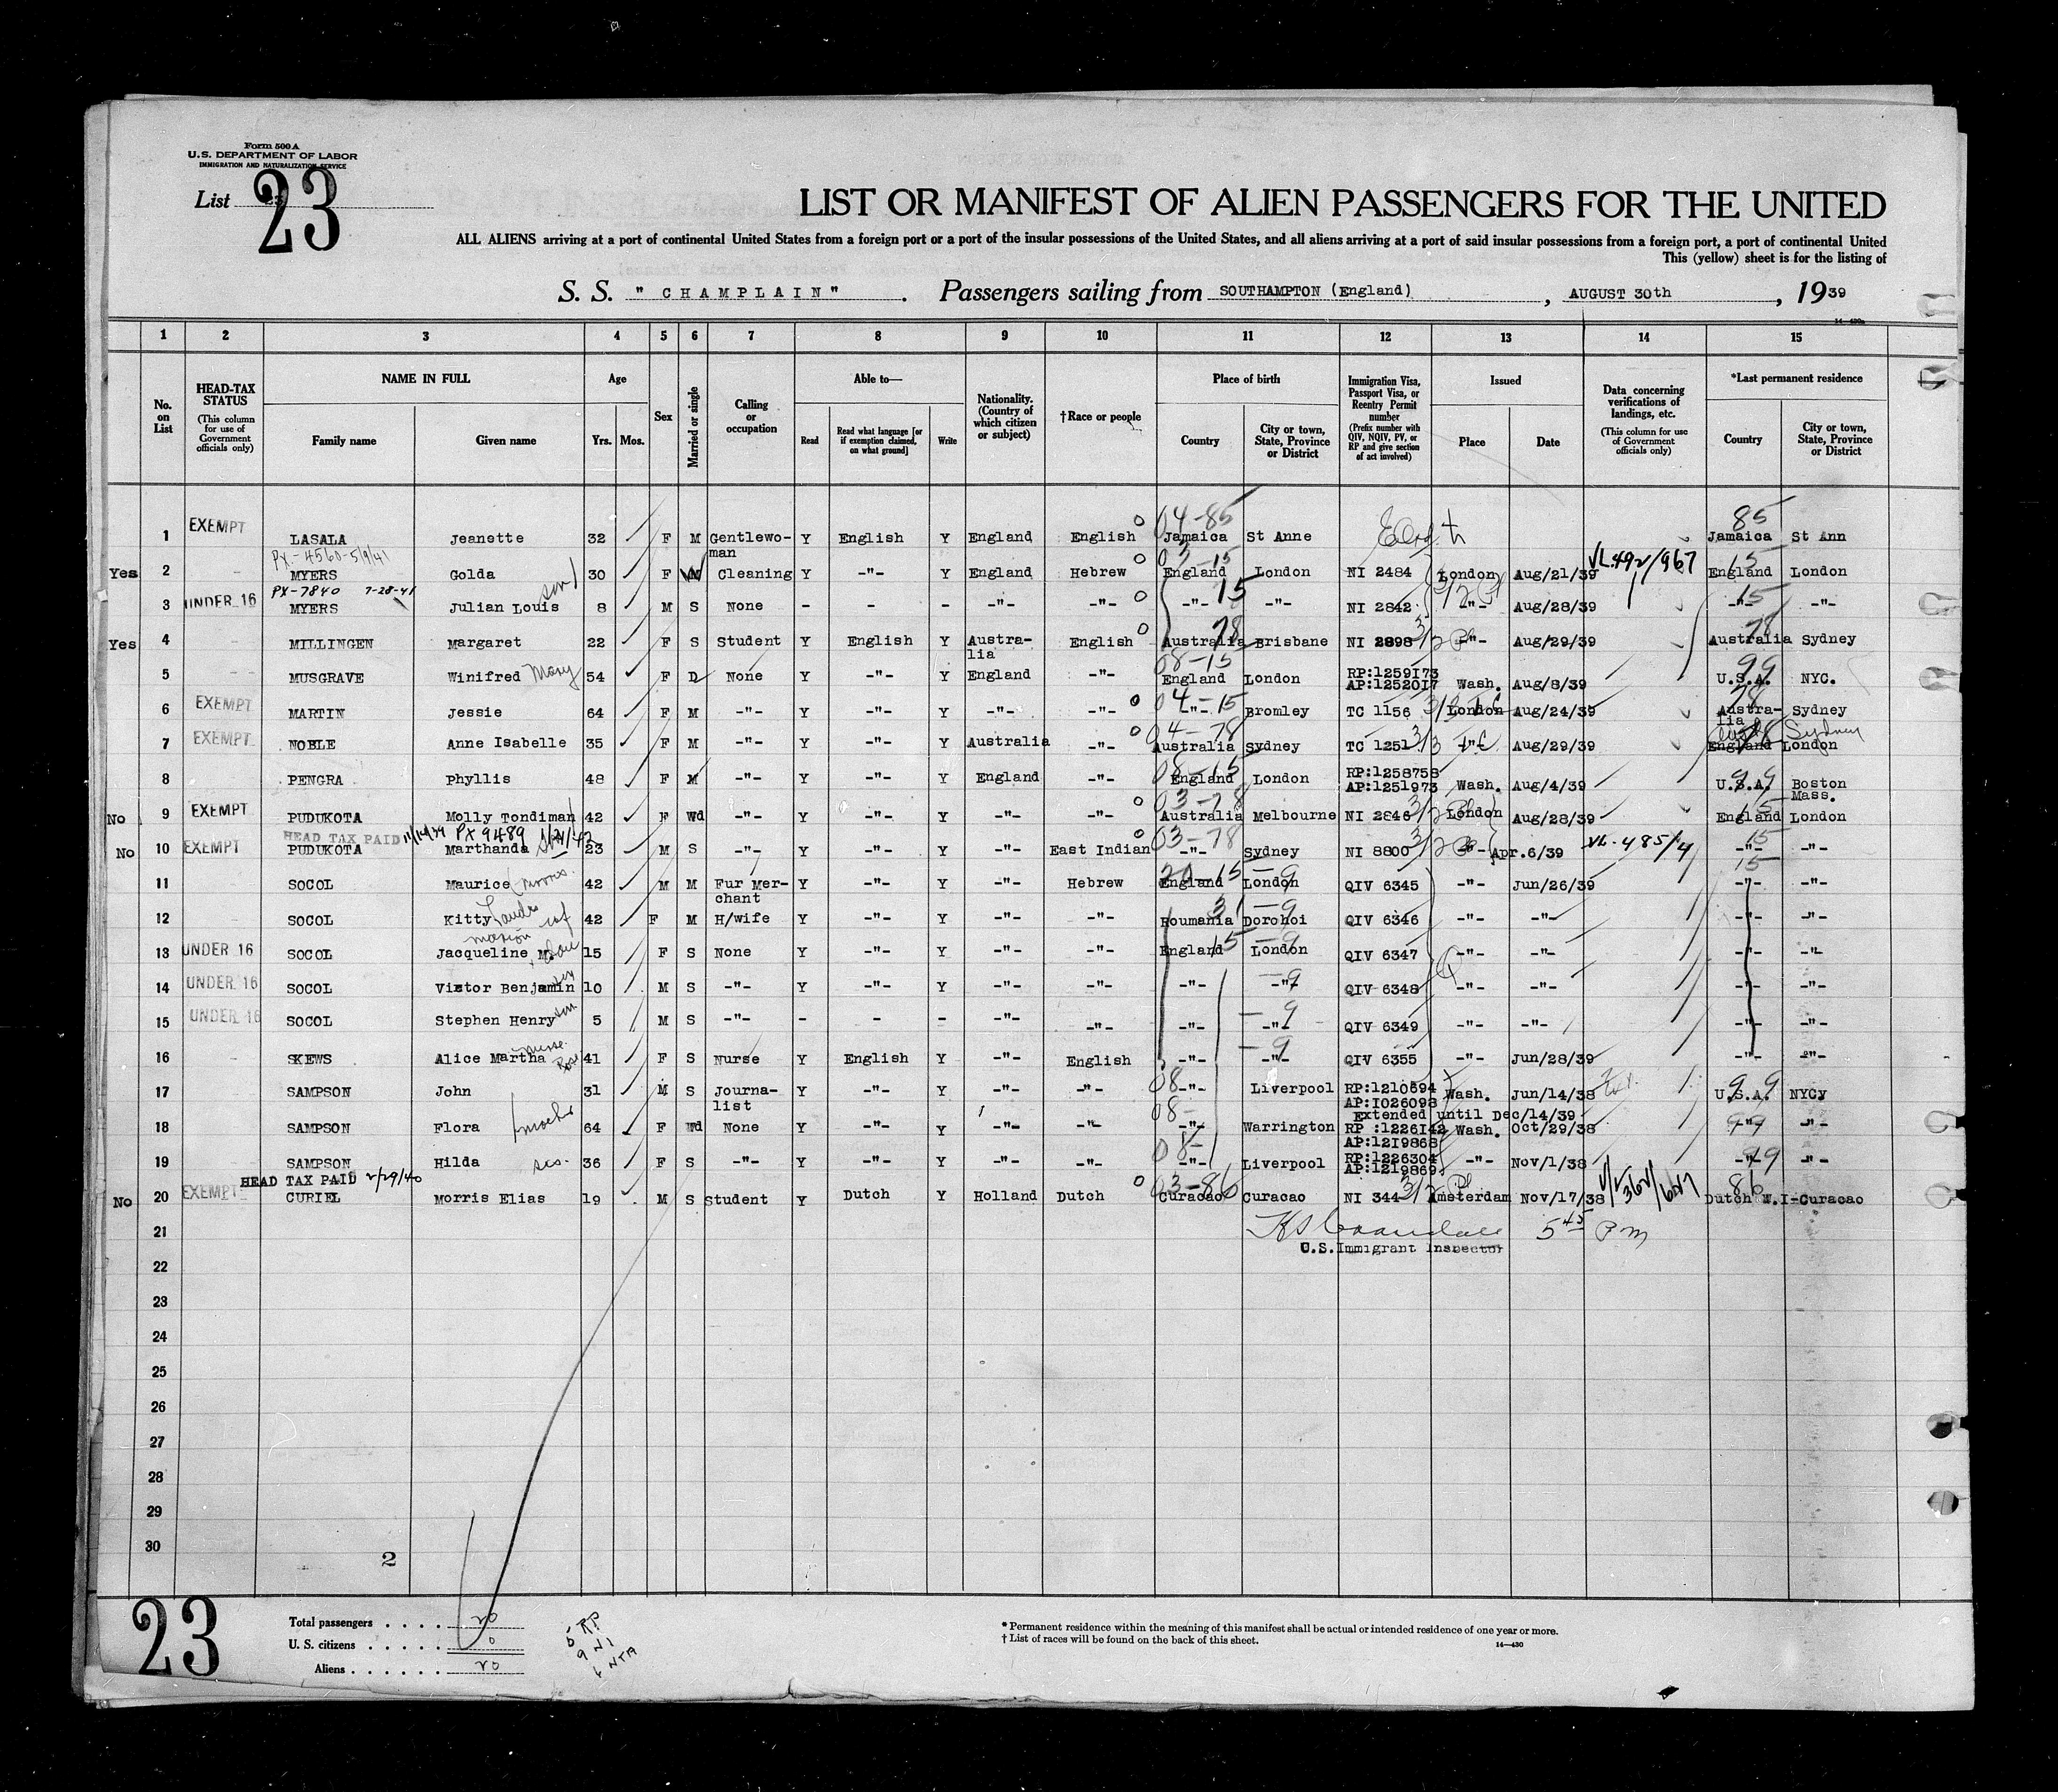 Form 500 A
U.S. DEPARTMENT OF LABOR
IMMIGRATION AND NATURALIZATION SERVICE
List 23
LIST OR MANIFEST OF ALIEN PASSENGERS FOR THE UNITED
ALL ALIENS arriving at a port of continental United States from a foreign port or a port of the insular possessions of the United States, and all aliens arriving at a port of said insular possessions from a foreign port, a port of continental United
This (yellow) sheet is for the listing of
S. S. "CHAMPLAIN". Passengers sailing from SOUTHAMPTON (England), AUGUST 30th, 1939
14—430a
1 2 3 4 5 6 7 8 9 10 11 12 13 14 15
No. on List
HEAD-TAX STATUS (This column for use of Government officials only)
NAME IN FULL Family name Given name
Age Yrs. Mos.
Sex
Married or single
Calling or occupation
Able to— Read Read what language [or if exemption claimed, on what ground] Write
Nationality. (Country of which citizen or subject)
†Race or people
Place of birth Country City or town, State, Province or District
Immigration Visa, Passport Visa, or Reentry Permit number (Prefix number with QIV, NQIV, PV, or RP and give section of act involved)
Issued Place Date
Data concerning verifications of landings, etc. (This column for use of Government officials only)
*Last permanent residence Country City or town, State, Province or District
1 EXEMPT LASALA Jeanette 32 F M Gentlewo-man Y English Y England English 04-85 Jamaica St Anne 85 Jamaica St Ann
PX-4560-5/9/41
Yes 2 MYERS Golda 30 F M Cleaning Y -"- Y England Hebrew 03-15 England London NI 2484 London Aug/21/39 VL.492/967 15 England London
PX-7840 7-28-41
3 UNDER 16 MYERS Julian Louis son 8 M S None - - - -"- -"- -"- 15 -"- NI 2842 -"- Aug/28/39 15 -"- -"-
Yes 4 MILLINGEN Margaret 22 F S Student Y English Y Austra-lia English 78 Australia Brisbane NI 2898 -"- Aug/29/39 78 Australia Sydney
5 MUSGRAVE Winifred Mary 54 F D None Y -"- Y England -"- 08-15 England London RP:1259173 AP:1252017 Wash. Aug/8/39 99 U.S.A. NYC.
6 EXEMPT MARTIN Jessie 64 F M -"- Y -"- Y -"- -"- 04-15 -"- Bromley TC 1156 London Aug/24/39 78 Austra-lia Sydney
7 EXEMPT NOBLE Anne Isabelle 35 F M -"- Y -"- Y Australia -"- 04-78 Australia Sydney TC 1251 -"- Aug/29/39 78 England London Sydney
8 PENGRA Phyllis 48 F M -"- Y -"- Y England -"- 08-15 England London RP:1258758 AP:1251973 Wash. Aug/4/39 99 U.S.A. Boston Mass.
No 9 EXEMPT PUDUKOTA Molly Tondiman 42 F Wd -"- Y -"- Y -"- -"- 03-78 Australia Melbourne NI 2846 London Aug/28/39 15 England London
HEAD TAX PAID PX 9489
No 10 EXEMPT PUDUKOTA Marthanda son 23 M S -"- Y -"- Y -"- East Indian 03-78 -"- Sydney NI 8800 -"- Apr.6/39 VL.485/4 15 -"- -"-
11 SOCOL Maurice (Morris. 42 M M Fur Mer-chant Y -"- Y -"- Hebrew 20-15-9 England London QIV 6345 -"- Jun/26/39 15 -"- -"-
12 SOCOL Kitty 42 F M H/wife Y -"- Y -"- -"- 31-9 Roumania Dorohoi QIV 6346 -"- -"- -"- -"-
13 UNDER 16 SOCOL Jacqueline M. Marion 15 F S None Y -"- Y -"- -"- 15-9 England London QIV 6347 -"- -"- -"- -"-
14 UNDER 16 SOCOL Victor Benjamin son 10 M S -"- Y -"- Y -"- -"- -"- -9 -"- QIV 6348 -"- -"- -"- -"-
15 UNDER 16 SOCOL Stephen Henry son 5 M S -"- - - - -"- -"- -"- -9 -"- QIV 6349 -"- -"- -"- -"-
16 SKEWS Alice Martha nurse. Rose 41 F S Nurse Y English Y -"- English -"- -9 -"- QIV 6355 -"- Jun/28/39 -"- -"-
17 SAMPSON John 31 M S Journa-list Y -"- Y -"- -"- 08 -"- Liverpool RP:1210594 AP:1026098 Wash. Jun/14/38 99 U.S.A. NYCy
Extended until Dec/14/39
18 SAMPSON Flora mother 64 F Wd None Y -"- Y -"- -"- 08- -"- Warrington RP :1226142 AP:1219868 Wash. Oct/29/38 99 -"- -"-
19 SAMPSON Hilda sis. 36 F S -"- Y -"- Y -"- -"- 08- -"- Liverpool RP:1226304 AP:1219869 -"- Nov/1/38 99 -"- -"-
HEAD TAX PAID 2/29/40
No 20 EXEMPT CURIEL Morris Elias 19 M S Student Y Dutch Y Holland Dutch 03-86 Curacao Curacao NI 344 Amsterdam Nov/17/38 86 Dutch W.I-Curacao
21 5 45 P m
U.S.Immigrant Inspector
22
23
24
25
26
27
28
29
30
2
23
Total passengers . . . . 20
U. S. citizens . . . . . 0
Aliens . . . . . . 20
5 RP
9 NI
6 NTA
*Permanent residence within the meaning of this manifest shall be actual or intended residence of one year or more.
†List of races will be found on the back of this sheet.
14—430